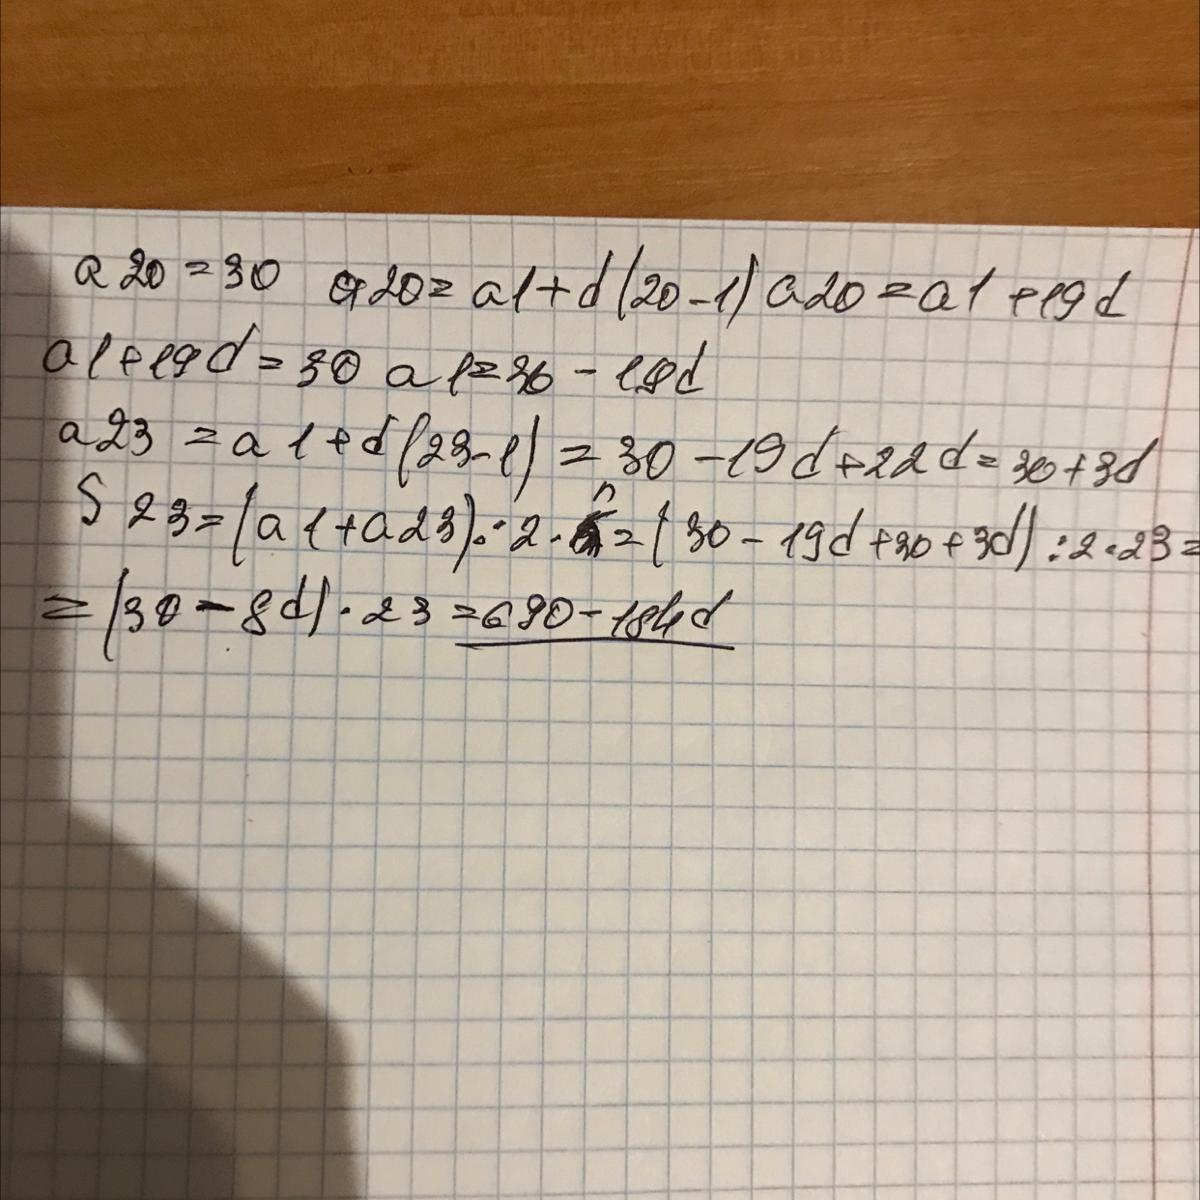 a20=30 a20= a1+d(20-1) a20=a1+19d
a1+19d=30 a1=30-19d
a23 =a1+d(23-1)=30-19d+22d=30+3d
S23=(a1+a23):2·n=(30-19d+30+3d):2·23=
=(30-8d)·23=690-184d